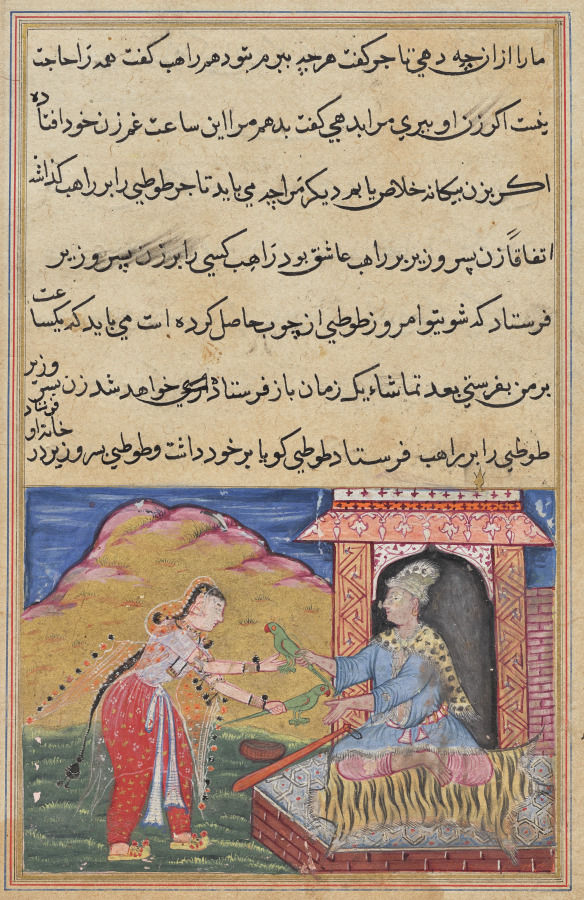 مارا ازاز چه دهي تاجر گفت هرچه ببرم بتو دهم راهب گفت همه را حاجت
نیست اگر زن او بیري مرا بدهي گفت بدهم مرا این ساعت غم زن خود افتاده
اگر بزن بیگانه خلاص یابم دیگر مرا چه مي باید تاجر طوطي را بر راهب گذاشت
اتفاقاً زن پسر وزیر بر راهب عاشق بود راهب کسي را بر زن پسر وزیر
فرستاد که شو یتوا مروز طوطي از چوب حاصل کرده است مي باید که یکساعت
بر من بفرستي بعد تماشاء یک زمان باز فرستاده خواهد شد زن پسر وزیر
طوطي را بر راهب فرستاد طوطي گویا بر خود داشت و طوطي پسر وزیر در خانه او فرستاد